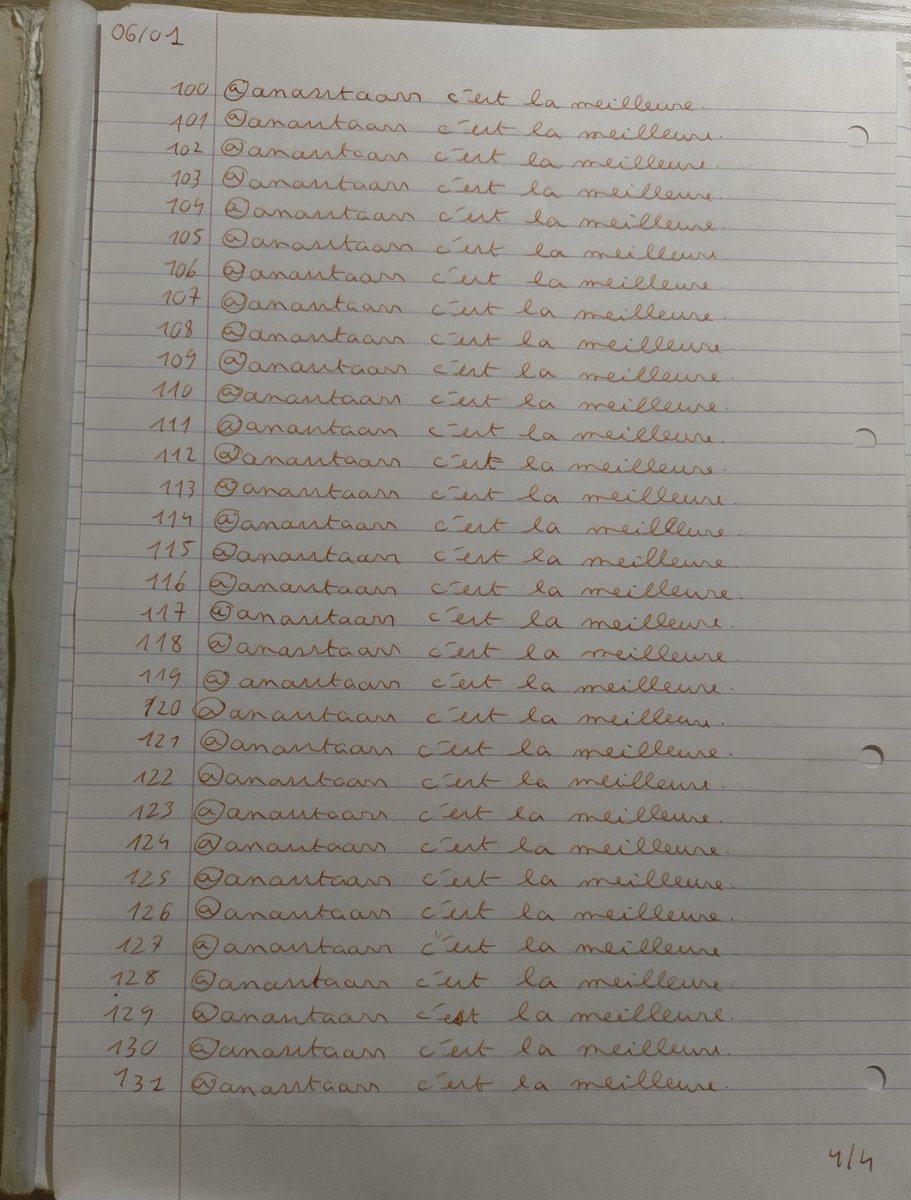 06/01
100 @anasstaasn c'est la meilleure.
101 @anasstaasn c'est la meilleure.
102 @anasstaasn c'est la meilleure.
103 @anasstaasn c'est la meilleure
104 @anasstaasn c'est la meilleure.
105 @anasstaasn c'est la meilleure
106 @anasstaasn c'est la meilleure.
107 @anasstaasn c'est la meilleure.
108 @anasstaasn c'est la meilleure.
109 @anasstaasn c'est la meilleure.
110 @anasstaasn c'est la meilleure.
111 @anasstaasn c'est la meilleure.
112 @anasstaasn c'est la meilleure.
113 @anasstaasn c'est la meilleure.
114 @anasstaasn c'est la meilleure.
115 @anasstaasn c'est la meilleure.
116 @anasstaasn c'est la meilleure.
117 @anasstaasn c'est la meilleure.
118 @anasstaasn c'est la meilleure.
119 @anasstaasn c'est la meilleure.
120 @anasstaasn c'est la meilleure.
121 @anasstaasn c'est la meilleure.
122 @anasstaasn c'est la meilleure.
123 @anasstaasn c'est la meilleure.
124 @anasstaasn c'est la meilleure.
125 @anasstaasn c'est la meilleure.
126 @anasstaasn c'est la meilleure.
127 @anasstaasn c'est la meilleure.
128 @anasstaasn c'est la meilleure.
129 @anasstaasn c'est la meilleure.
130 @anasstaasn c'est la meilleure.
131 @anasstaasn c'est la meilleure.
4/4